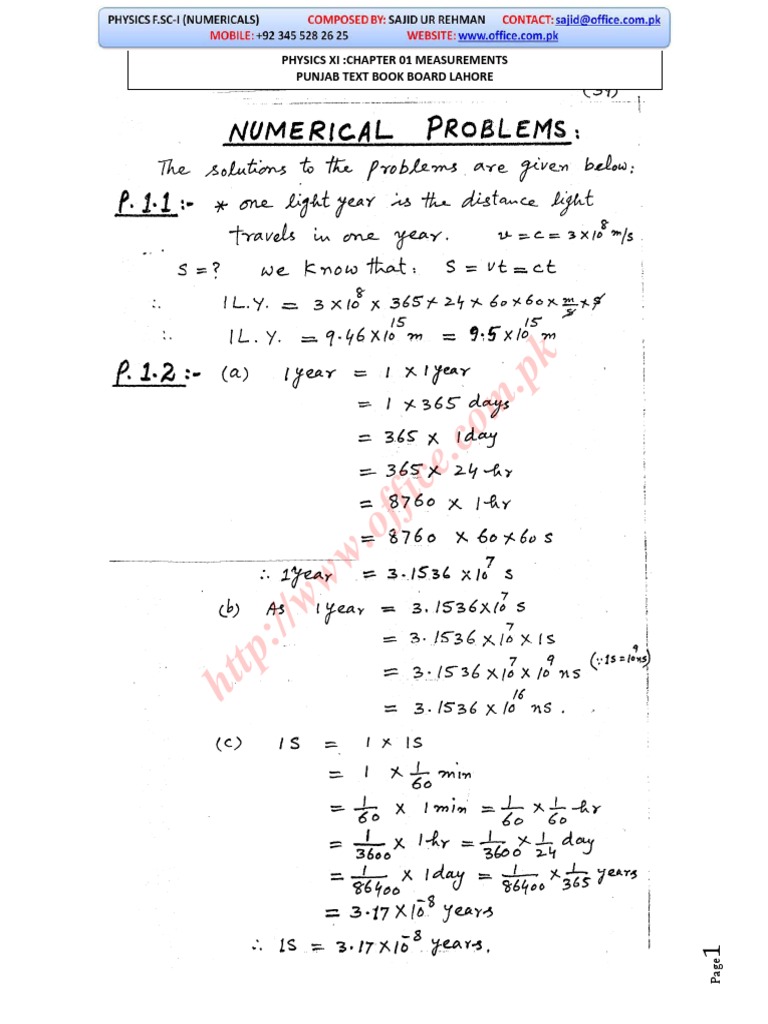 PHYSICS F.SC-I (NUMERICALS) COMPOSED BY: SAJID UR REHMAN CONTACT: sajid@office.com.pk
MOBILE: +92 345 528 26 25 WEBSITE: www.office.com.pk
PHYSICS XI :CHAPTER 01 MEASUREMENTS
PUNJAB TEXT BOOK BOARD LAHORE
NUMERICAL PROBLEMS:
The solutions to the problems are given below:
P.1.1:- * one light year is the distance light
travels in one year. v = c = 3×10⁸ m/s
S = ? we know that: S = vt = ct
∴ 1L.Y. = 3×10⁸ × 365 × 24 × 60×60 × m/s × s
∴ 1L.Y. = 9.46×10¹⁵ m = 9.5×10¹⁵ m
P.1.2:- (a) 1year = 1 × 1year
= 1 × 365 days
= 365 × 1day
= 365 × 24 hr
= 8760 × 1hr
= 8760 × 60×60 s
∴ 1year = 3.1536 ×10⁷ s
(b) As 1year = 3.1536×10⁷ s
= 3.1536 ×10⁷ × 1s
= 3.1536 ×10⁷ × 10⁹ ns (∵ 1s = 10⁹ ns)
= 3.1536 × 10¹⁶ ns.
(c) 1S = 1 × 1S
= 1 × 1/60 min
= 1/60 × 1min = 1/60 × 1/60 hr
= 1/3600 × 1hr = 1/3600 × 1/24 day
= 1/86400 × 1day = 1/86400 × 1/365 years
= 3.17 ×10⁻⁸ years
∴ 1S = 3.17×10⁻⁸ years.
http://www.office.com.pk
Page1